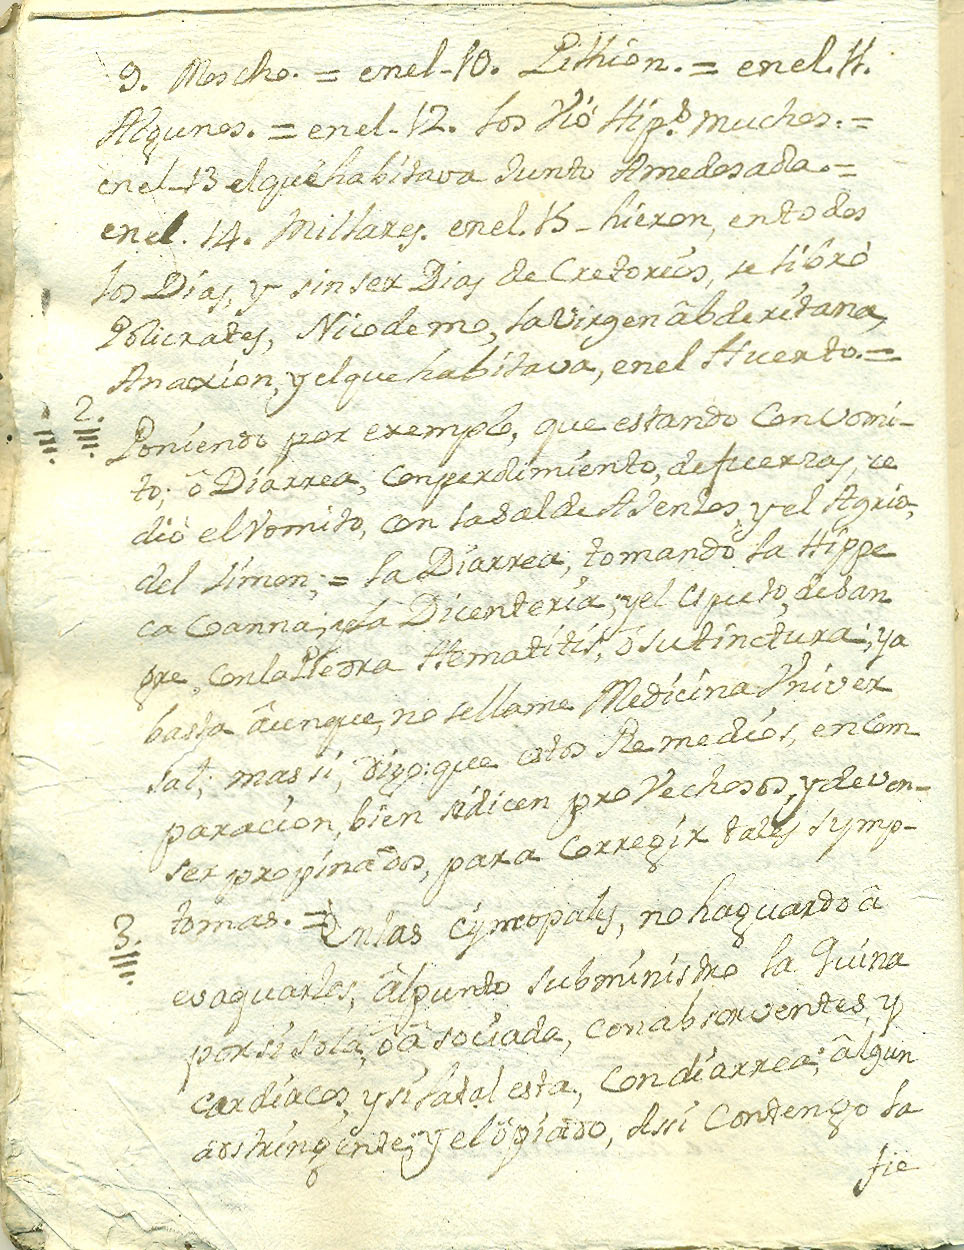 9. Moscho. = en el-10. Pithion. = en el. 11.
Algunos. = en el-12. los vió Hip.s muchos. =
en el-13 el que habitava Junto Amedosada. =
en el. 14. Millares. en el. 15- hieron, en todos
los Dias, y sin ser Dias de Cretoreos, se libró
Policrates, Nicodemo, la Virgen âbderitana,
Anaxion, y el que habitava, en el Huerto. =
2.
Poniendo por exemplo, que estando Con vomi-
to; ô Diarrea, con perdimiento, de fuerzas, se
dió el Vomito, con la sal de Ajenxos, y el Agrio,
del limon; = la Diarrea, tomando la Hippe
ca Coanna; y la Dicenteria; y el Esputo, de San
gre, con la Piedra Hematitis, ô su tinctura; ya
basta âunque, no se llame Medicina Univer
sal; mas si, digo: que estos Remedios, en Com
paracion, bien se dicen proVechosos, y deven-
ser propinados, para Corregir tales symp-
3.
tomas. = En las Cyncopales, no haguardo â
evaquarlos, âl punto subministro la Quina
por si sola, ô âsociada, con absorventes, y
cardiacos, y si la tal esta, Con diarrea; âlgun
adstringente; y el ôpiado, Assi Contengo la
fie